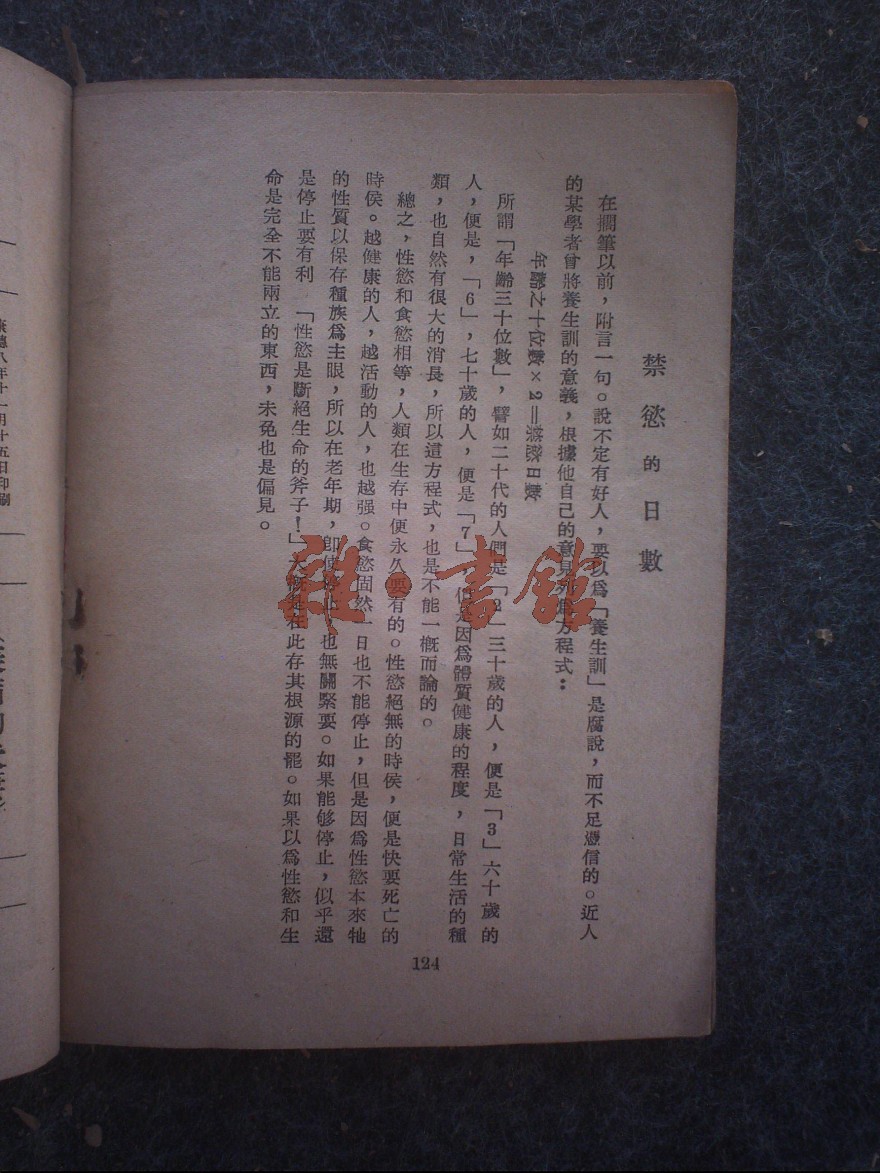 禁慾的日數
在擱筆以前，附言一句。說不定有好人，要以爲「養生訓」是腐說，而不足憑信的。近人
的某學者曾將養生訓的意義，根據他自己的意見列爲方程式：
年齡之十位數×2＝禁慾日數
所謂「年齡三十位數」，譬如二十代的人們是「2」三十歲的人，便是「3」六十歲的
人，便是，「6」，七十歲的人，便是「7」，但是因爲體質健康的程度，日常生活的種
類，也自然有很大的消長，所以這方程式，也是不能一概而論的。
總之，性慾和食慾相等，人類在生存中便永久要有的。性慾絕無的時侯，便是快要死亡的
時侯。越健康的人，越活動的人，也越强。食慾固然一日也不能停止，但是因爲性慾本來牠
的性質以保存種族爲主眼，所以在老年期，卽使停止，也無關緊要。如果能够停止，似乎還
是停止要有利 「性慾是斷絕生命的斧子！」大概是在此存其根源的罷。如果以爲性慾和生
命是完全不能兩立的東西，未免也是偏見。
124
雜·書館
康德八年十一月十五日印刷